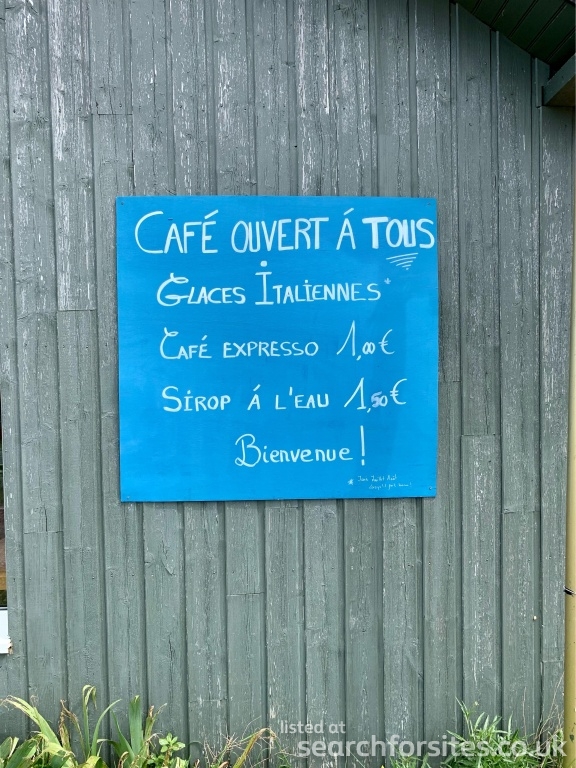 CAFÉ OUVERT Á TOUS
GLACES ITALIENNES*
CAFÉ EXPRESSO 1,00€
SIROP Á L'EAU 1,50€
Bienvenue !
* Juin Juillet Août
listed at
searchforsites.co.uk